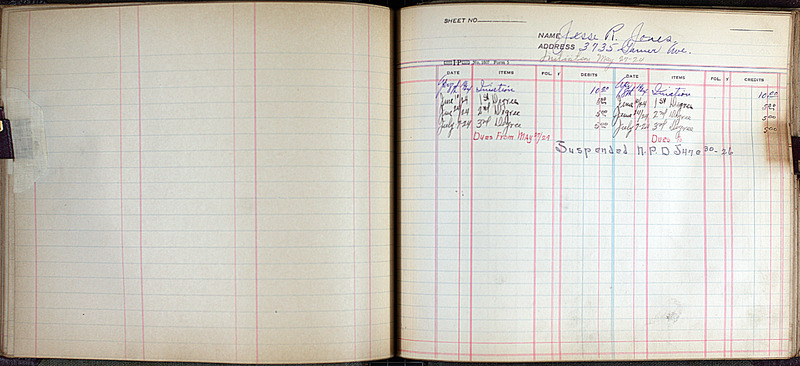 SHEET NO.
NAME Jesse R. Jones
ADDRESS 3735 Ave.
Initiation May 27-24
I-P No. 267 Form 1
DATE ITEMS FOL. √ DEBITS DATE ITEMS FOL. √ CREDITS
10.00 10.00
June /24 1st Degree 5.00 June /24 1st Degree 5.00
June /24 2nd Degree 5.00 June /24 2nd Degree 5.00
July 7-24 3rd Degree 5.00 July 7-24 3rd Degree 5.00
Dues From May 27/24 Dues
Suspended N.P.D June 30-26